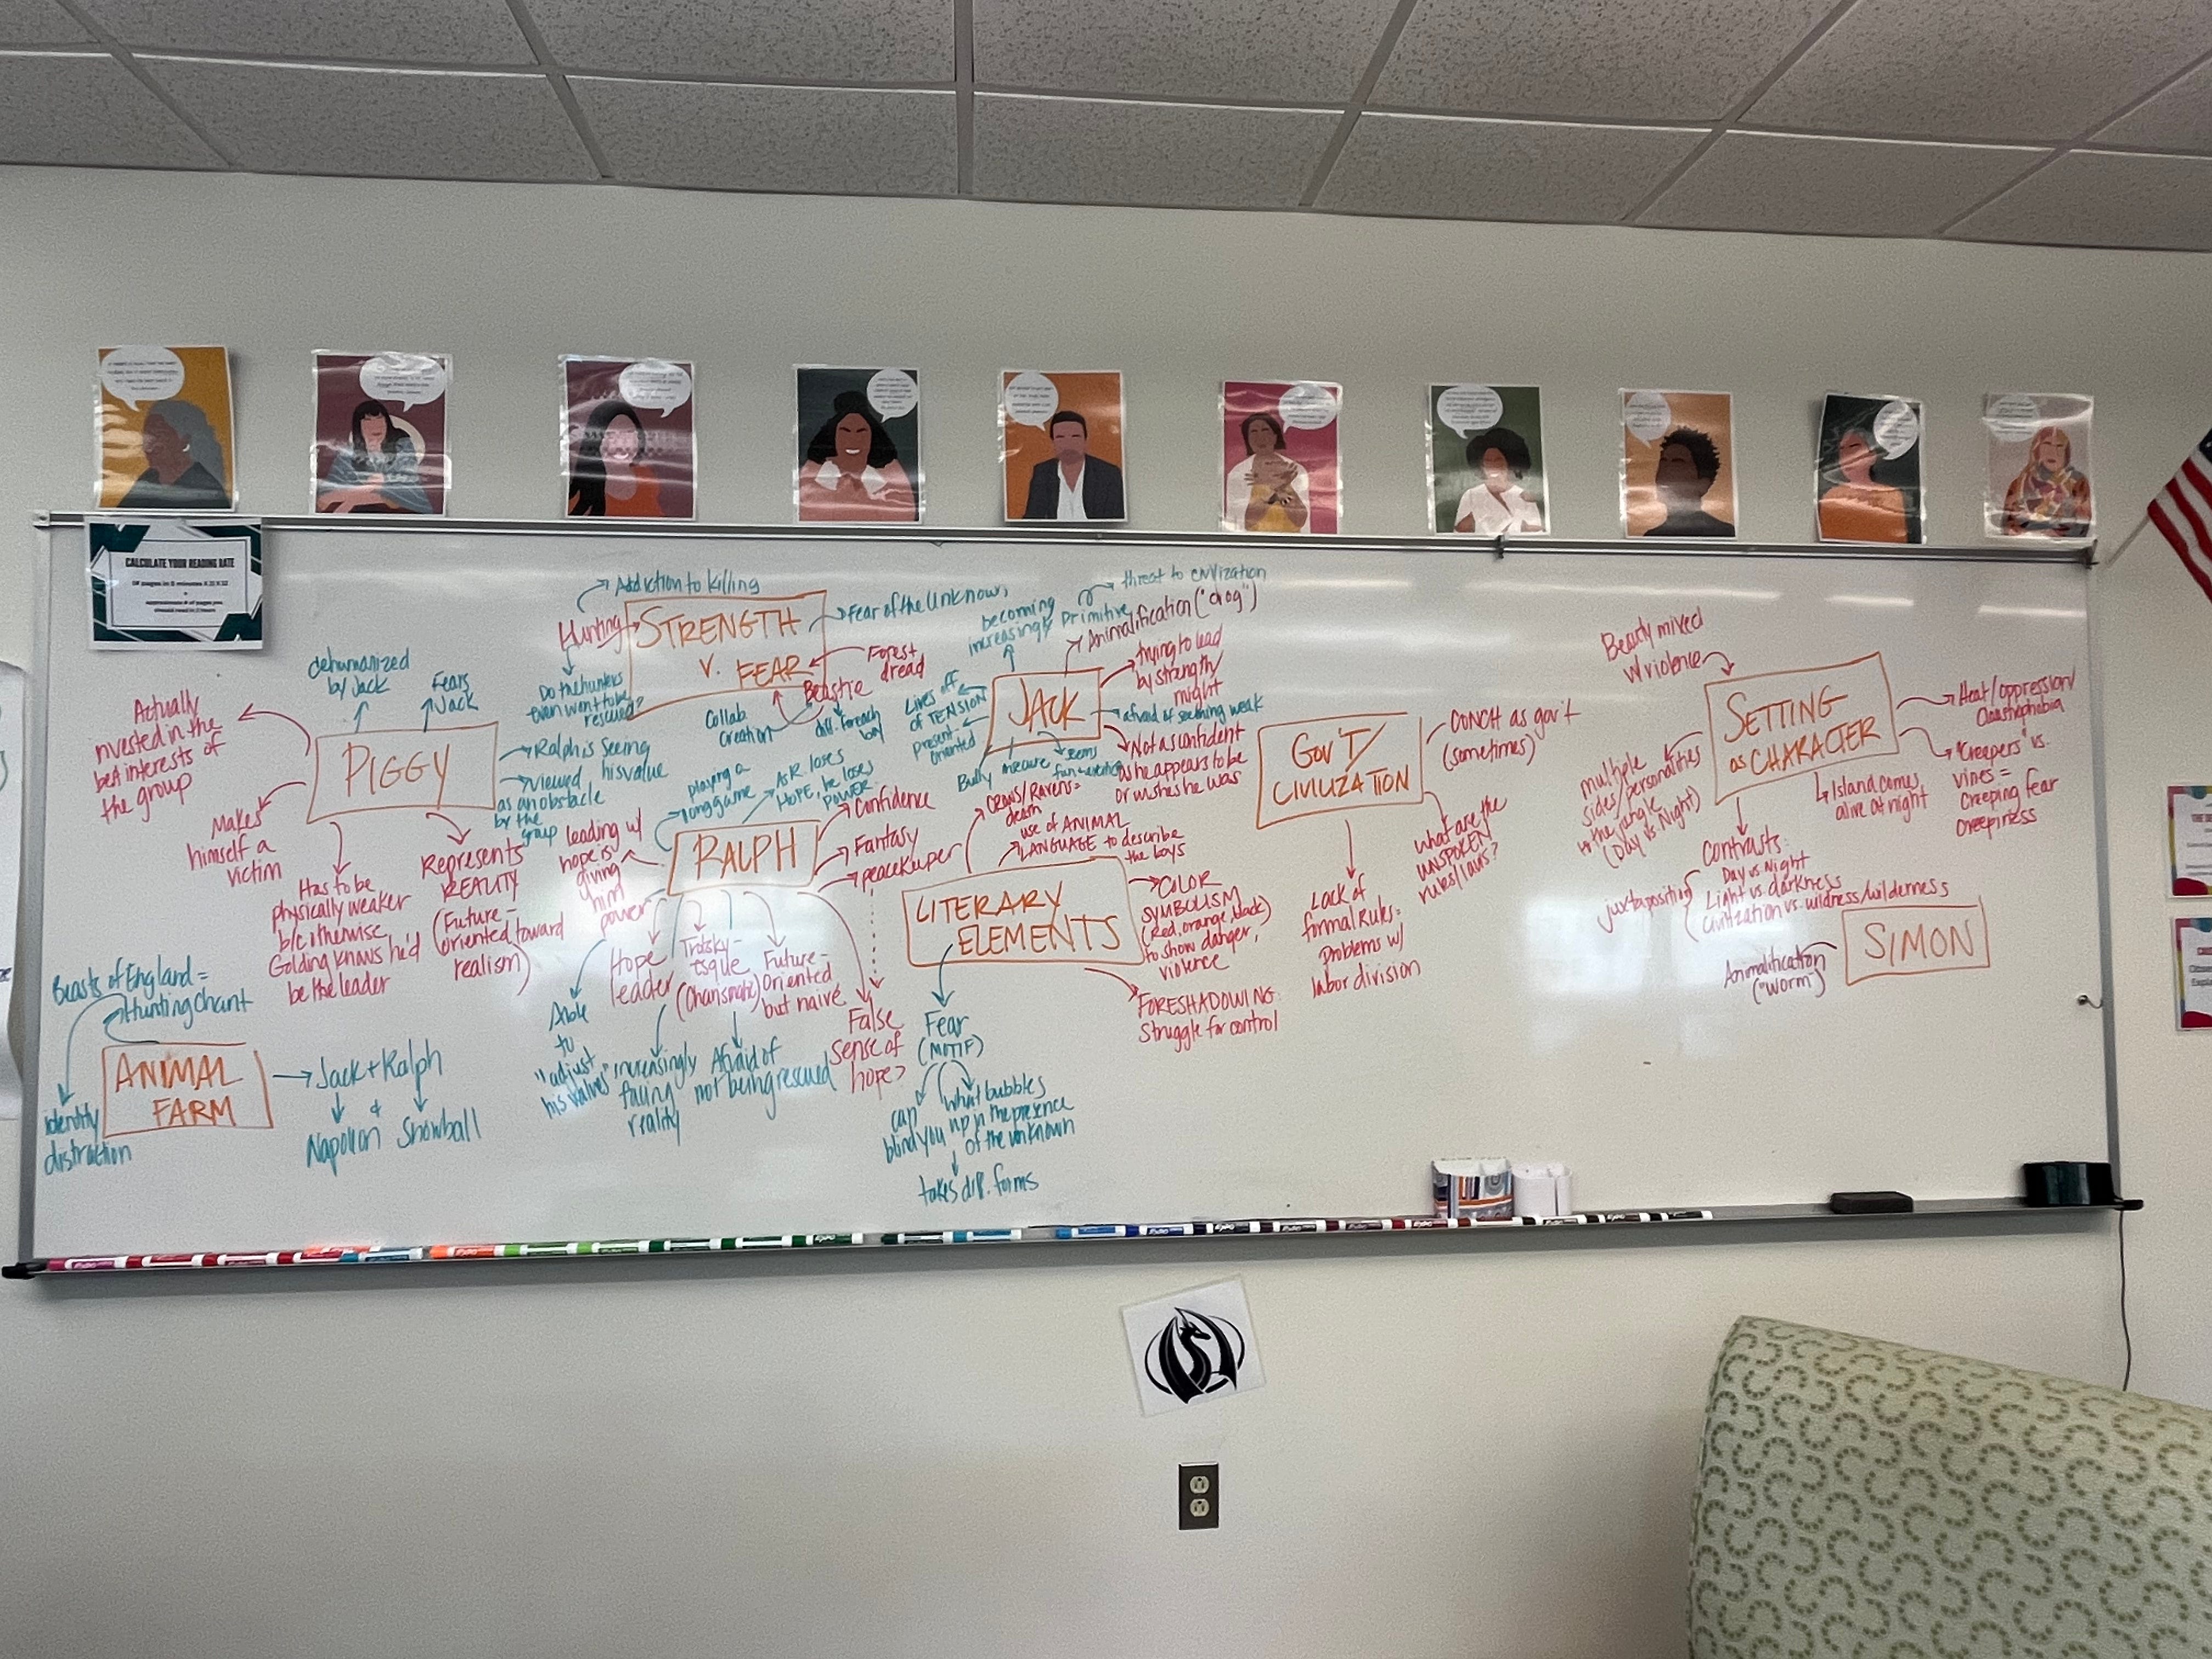 CALCULATE YOUR READING RATE
Addiction to killing
Hunting
STRENGTH
V. FEAR
Fear of the Unknown
Forest
dread
Beastie
Do the hunters
even want to be
rescued?
Collab
Creation
diff. for each
boy
dehumanized
by Jack
Fears
Jack
Actually
invested in the
best interests of
the group
PIGGY
Ralph is seeing
his value
viewed
as an obstacle
by the
group
Makes
himself a
victim
Has to be
physically weaker
b/c otherwise
Golding knows he'd
be the leader
Represents
REALITY
(Future-
oriented toward
realism)
Beasts of England =
Hunting chant
ANIMAL
FARM
identity
distraction
Jack + Ralph
&
Napoleon Snowball
playing a
long game
As R. loses
HOPE, he loses
POWER
leading w/
hope is
giving
him
power
RALPH
Confidence
Fantasy
peacekeeper
Able
to
"adjust
his values"
Hope
leader
increasingly
facing
reality
Trotsky-
esque
(Charismatic)
Afraid of
not being rescued
Future-
Oriented
but naive
False
sense of
hope?
threat to civilization
becoming
increasingly Primitive
Animalification ("dog")
trying to lead
by strength/
might
JACK
Lives off
of TENSION
present-
oriented
afraid of seeming weak
Not as confident
as he appears to be
or wishes he was
Bully
insecure
seems
CROWS/Ravens =
death
use of ANIMAL
LANGUAGE to describe
the boys
LITERARY
ELEMENTS
COLOR
SYMBOLISM
(Red, orange, black)
to show danger,
violence
FORESHADOWING:
Struggle for control
Fear
(MOTIF)
can
blind you
what bubbles
up in the presence
of the unknown
takes diff. forms
GOV'T/
CIVILIZATION
CONCH as gov't
(sometimes)
What are the
UNSPOKEN
rules/laws?
Lack of
formal Rules =
Problems w/
labor division
Beauty mixed
w/ violence
SETTING
as CHARACTER
Heat/oppression/
Claustrophobia
"Creepers" vs.
vines =
Creeping fear
Creepiness
multiple
sides/personalities
to the jungle
(Day vs. Night)
Island comes
alive at night
Contrasts:
Day vs. Night
Light vs. darkness
Civilization vs. wildness/wilderness
juxtaposition
SIMON
Animalification
("worm")
EXPO